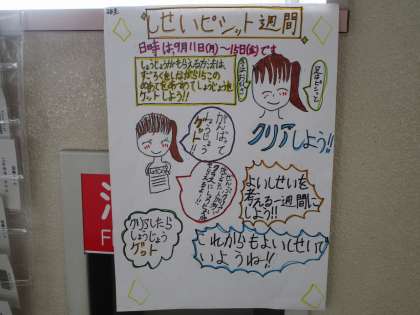 しせいピシット週間
日時は、9月11日(月)〜15日(金)です
しょうじょうがもらえる方法は、
すごろくをしながら15この
めあてをあつめてしょうじょうを
ゲットしよう!!
足をピシッと
クリアしよう!!
がんばって
しょうじょう
ゲット!!
よいしせいを
考える一週間に
しよう!!
クリアしたら
しょうじょう
ゲット
これからもよいしせいで
いようね!!